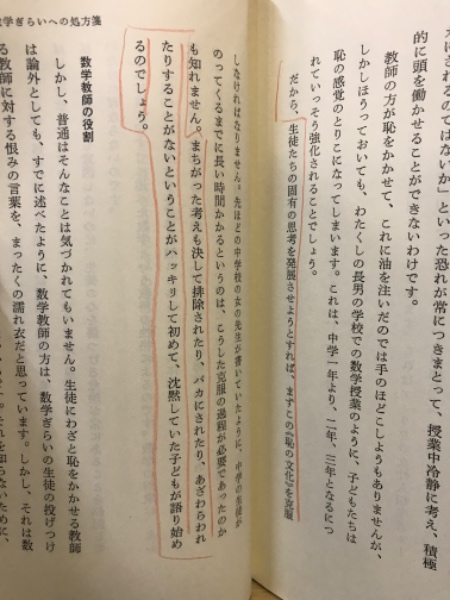 さされるのではないか」といった恐れが常につきまとって、授業中冷静に考え、積極
的に頭を働かせることができないわけです。
教師の方が恥をかかせて、これに油を注いだのでは手のほどこしようもありませんが、
しかしほうっておいても、わたくしの長男の学校での数学授業のように、子どもたちは
恥の感覚のとりこになってしまいます。これは、中学一年より、二年、三年となるにつ
れていっそう強化されることでしょう。
だから、生徒たちの固有の思考を発展させようとすれば、まずこの『恥の文化』を克服
しなければなりません。先ほどの中学校の女の先生が書いていたように、中学の生徒が
のってくるまでに長い時間かかるというのは、こうした克服の過程が必要であったのか
も知れません。まちがった考えも決して排除されたり、バカにされたり、あざわらわれ
たりすることがないということがハッキリして初めて、沈黙していた子どもが語り始め
るのでしょう。
数学教師の役割
しかし、普通はそんなことは気づかれてもいません。生徒にわざと恥をかかせる教師
は論外としても、すでに述べたように、数学教師の方は、数学ぎらいの生徒の投げつけ
る教師に対する恨みの言葉を、まったくの濡れ衣だと思っています。しかし、それは数
学ぎらいへの処方箋